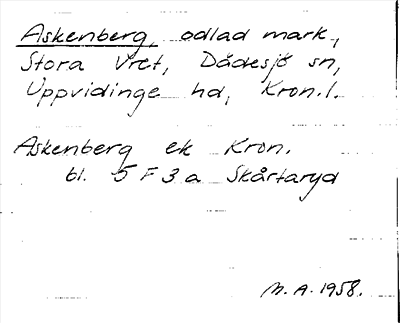 Askenberg, odlad mark,
Stora Vret, Dädesjö sn,
Uppvidinge hd, Kron.l.
Askenberg ek Kron.
bl. 5 F 3 a Skårtaryd
M.A. 1958.